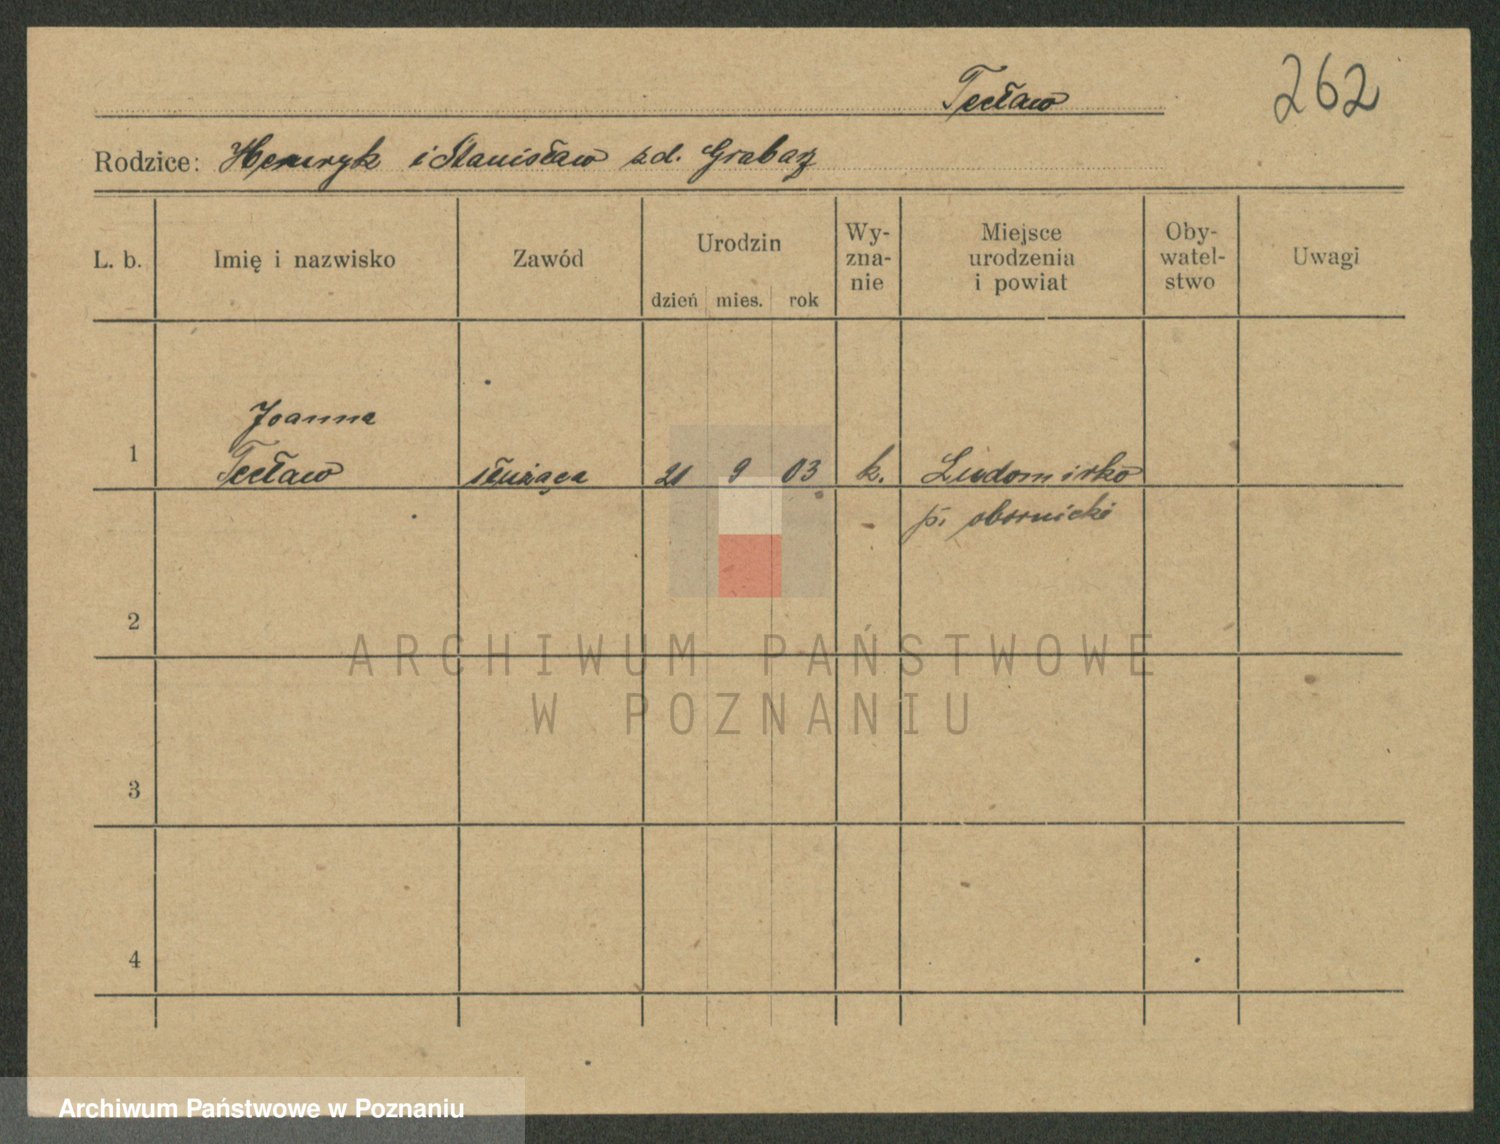 Tecław
262
Rodzice: Henryk i Stanisław zd. Grabarz
L. b. Imię i nazwisko Zawód Urodzin Wy-zna-nie Miejsce urodzenia i powiat Oby-watel-stwo Uwagi
dzień mies. rok
Joanna
1 Tecław służąca 21 9 03 k. Ludomirko
p. obornicki
2
ARCHIWUM PAŃSTWOWE
W POZNANIU
3
4
Archiwum Państwowe w Poznaniu